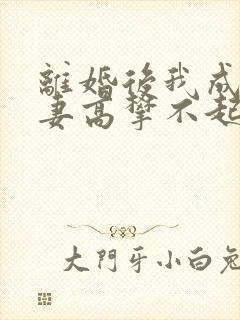 離婚後我成
妻高攀不起
大門牙小白兔